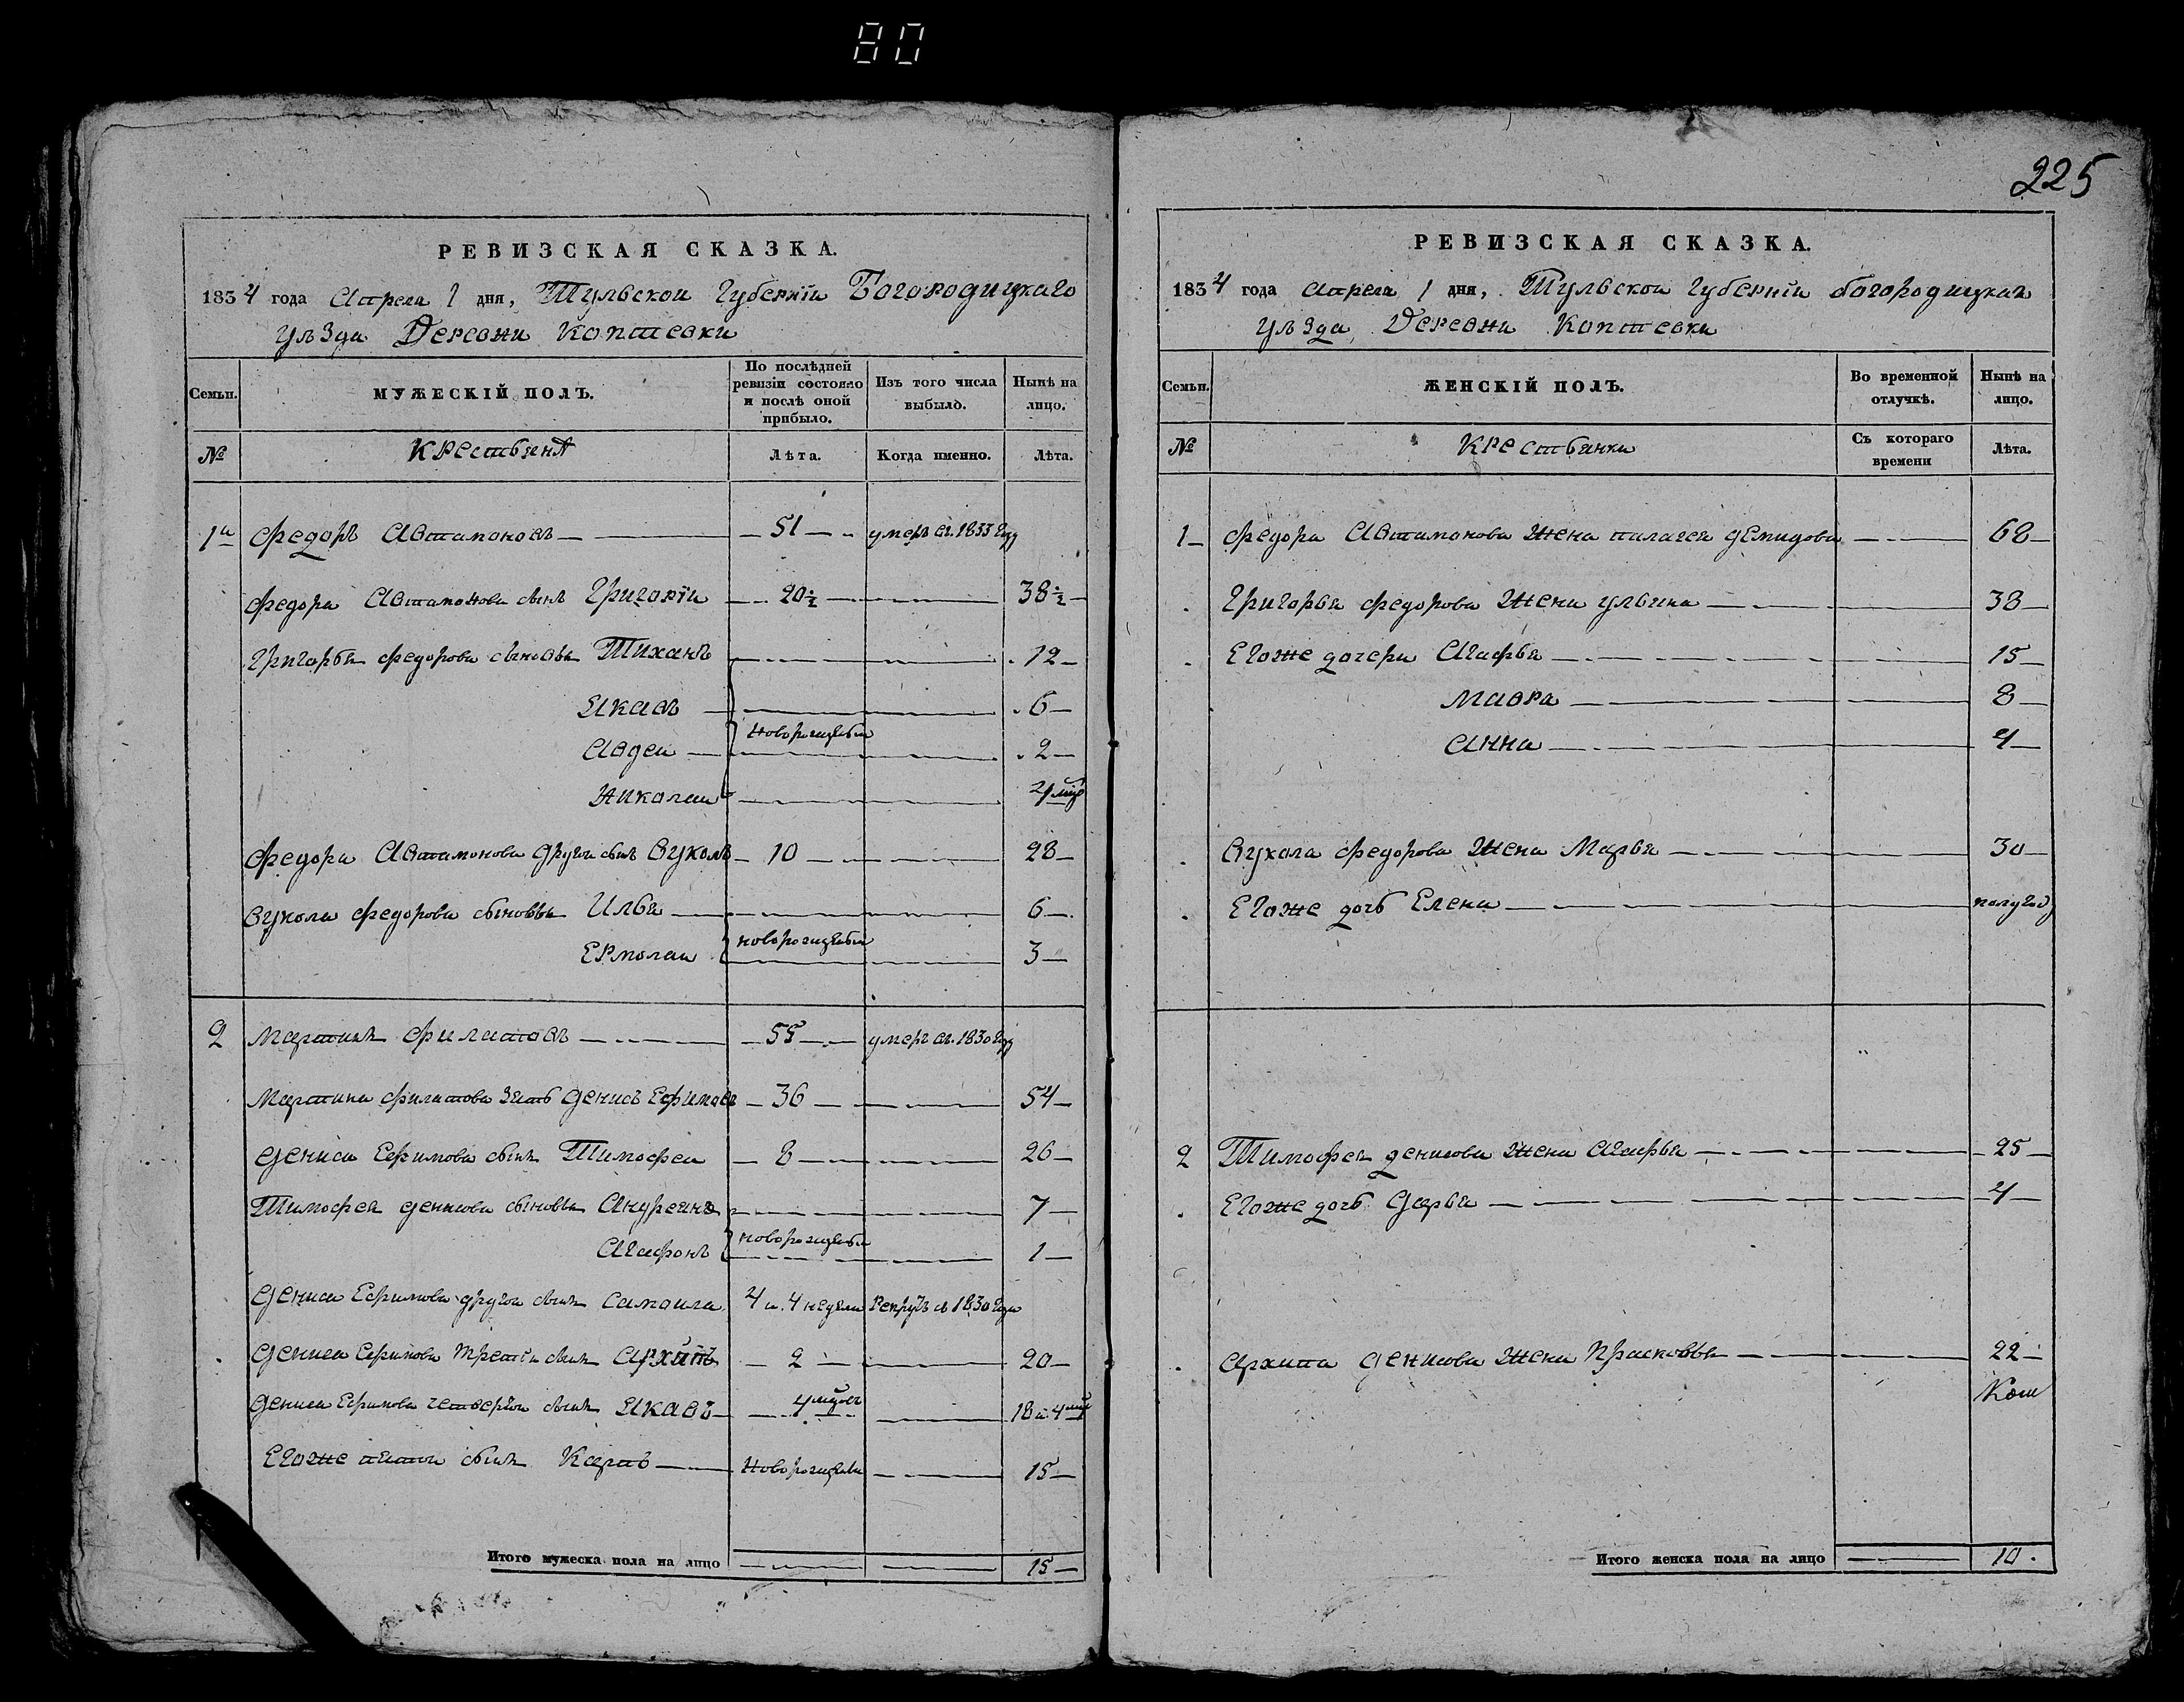 80
225
РЕВИЗСКАЯ СКАЗКА.
1834 года Апреля 1 дня, Тульской Губернїи Богородицкаго
уѣзда Деревни Коптевки
Семьи.
МУЖЕСКІЙ ПОЛЪ.
По послѣдней ревизіи состояло и послѣ оной прибыло.
Изъ того числа выбыло.
Нынѣ на лицо.
№ Крестьянѣ Лѣта. Когда именно. Лѣта.
1й Федоръ Автамоновъ 51 умеръ въ 1833 году
Федора Автамонова сынъ Григорїи 20½ 38½
Григорья Федорова сыновья Тиханъ 12
Якавъ 6
новорожденныя
Авдеи 2
Николаи 4 мѣс
Федора Автамонова другои сынъ Вуколъ 10 28
Вукола Федорова сыновья Илья 6
новорожденныя
Ермолаи 3
2 Мартинъ Филатовъ 55 умеръ въ 1830 году
Мартина Филатова зять Денисъ Ефимовъ 36 54
Дениса Ефимова сынъ Тимофеи 8 26
Тимофея Денисова сыновья Андреянъ 7
новорожденныя
Агафонъ 1
Дениса Ефимова другои сынъ Самоила 4 и 4 недели Рекрутъ съ 1830 года
Дениса Ефимова третїи сынъ Архипъ 2 20
Дениса Ефимова четвертои сынъ Якавъ 4 мѣсяцъ 18 и 4 мѣс
Егоже пятои сынъ Карпъ Новорожденны 15
Итого мужеска пола на лицо 15
РЕВИЗСКАЯ СКАЗКА.
1834 года Апреля 1 дня, Тульскои Губернїи богородицкаго
уѣзда Деревни Коптевки
Семьи.
ЖЕНСКІЙ ПОЛЪ.
Во временной отлучкѣ.
Нынѣ на лицо.
№ Крестьянки Съ котораго времени Лѣта.
1 Федора Автамонова жена пилагея демидова 68
Григорья Федорова жена ульяна 38
Егоже дочери Агафья 15
Мавра 8
Анна 4
Вукола Федорова жена Марья 30
Егоже дочь Елена полугод
2 Тимофея денисова жена Агафья 25
Егоже дочь Дарья 4
Архипа Денисова жена Прасковья 22
Кош
Итого женска пола на лицо 10